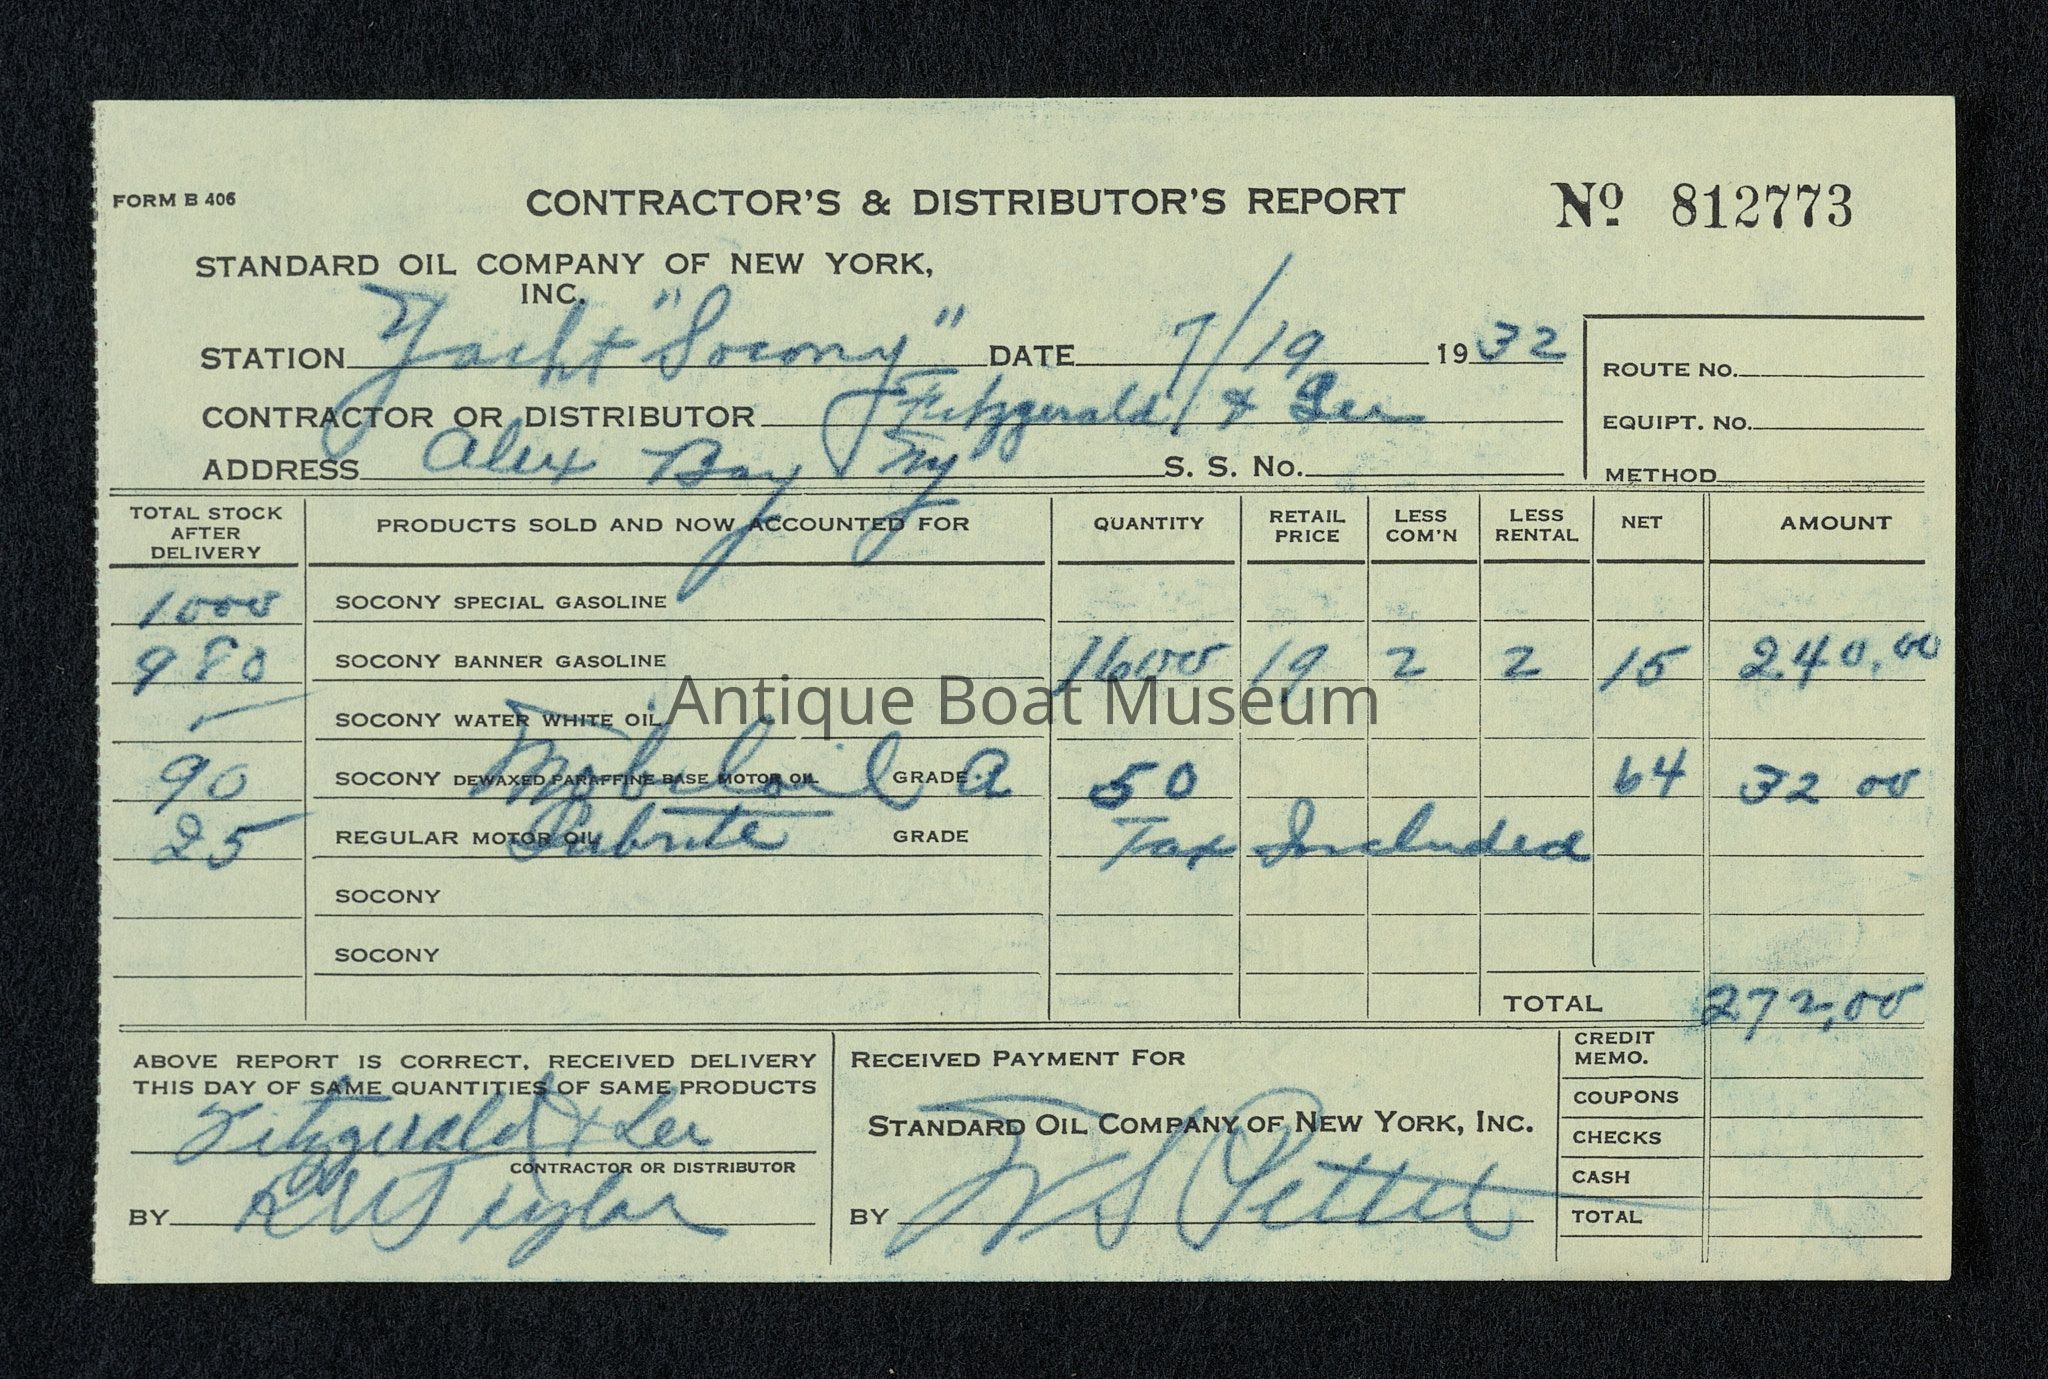 FORM B 406
CONTRACTOR'S & DISTRIBUTOR'S REPORT
No 812773
STANDARD OIL COMPANY OF NEW YORK,
INC.
STATION Yacht "Socony" DATE 7/19 1932
CONTRACTOR OR DISTRIBUTOR Fitzgerald & Lee
ADDRESS Alex Bay Ny S. S. No.
ROUTE No.
EQUIPT. No.
METHOD
TOTAL STOCK AFTER DELIVERY PRODUCTS SOLD AND NOW ACCOUNTED FOR QUANTITY RETAIL PRICE LESS COM'N LESS RENTAL NET AMOUNT
1000 SOCONY SPECIAL GASOLINE
980 SOCONY BANNER GASOLINE 1600 19 2 2 15 240.00
— SOCONY WATER WHITE OIL
Antique Boat Museum
90 SOCONY DEWAXED PARAFFINE BASE MOTOR OIL Mobiloil GRADE A 50 64 32 00
25 REGULAR MOTOR OIL GRADE Tax Included
SOCONY
SOCONY
TOTAL 272.00
ABOVE REPORT IS CORRECT, RECEIVED DELIVERY
THIS DAY OF SAME QUANTITIES OF SAME PRODUCTS
Fitzgerald & Lee
CONTRACTOR OR DISTRIBUTOR
BY
RECEIVED PAYMENT FOR
STANDARD OIL COMPANY OF NEW YORK, INC.
BY W S Pettit
CREDIT MEMO.
COUPONS
CHECKS
CASH
TOTAL